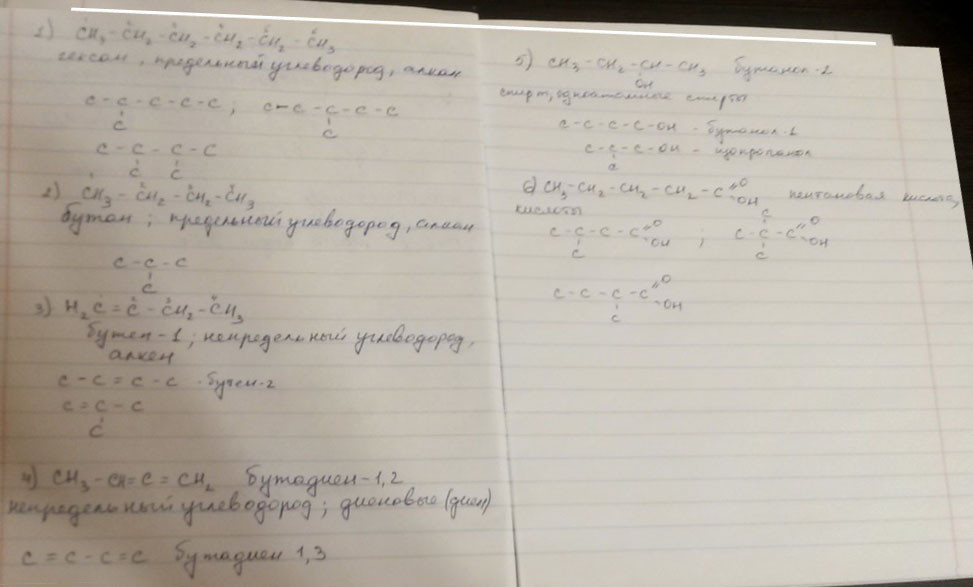 1) CH3 - CH2 - CH2 - CH2 - CH2 - CH3
гексан, предельный углеводород, алкан
C - C - C - C - C ; C - C - C - C - C
C C
C - C - C - C
C C
2) CH3 - CH2 - CH2 - CH3
бутан ; предельный углеводород, алкан
C - C - C
C
3) H2C = C - CH2 - CH3
бутен-1 ; непредельный углеводород,
алкен
C - C = C - C - бутен-2
C = C - C
C
4) CH3 - CH = C = CH2 бутадиен-1,2
непредельный углеводород ; диеновые (диен)
C = C - C = C бутадиен 1,3
5) CH3 - CH2 - CH - CH3 бутанол-2
OH
спирт, одноатомные спирты
C - C - C - C - OH - бутанол-1
C - C - C - OH - изопропанол
C
6) CH3 - CH2 - CH2 - CH2 - C =O OH пентановая кислота,
кислоты
C
C - C - C - C =O OH ; C - C - C =O OH
C C
C - C - C - C =O OH
C